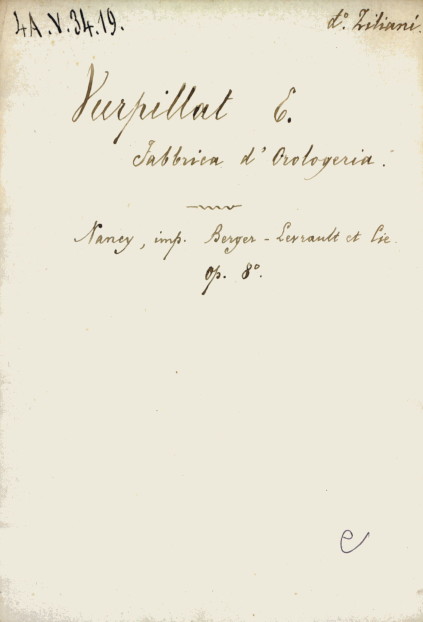 4A.V.34.19.
d.º Ziliani.
Vurpillat E.
Fabbrica d'Orologeria.
Nancy, imp. Berger-Levrault et Cie.
op. 8º.
e